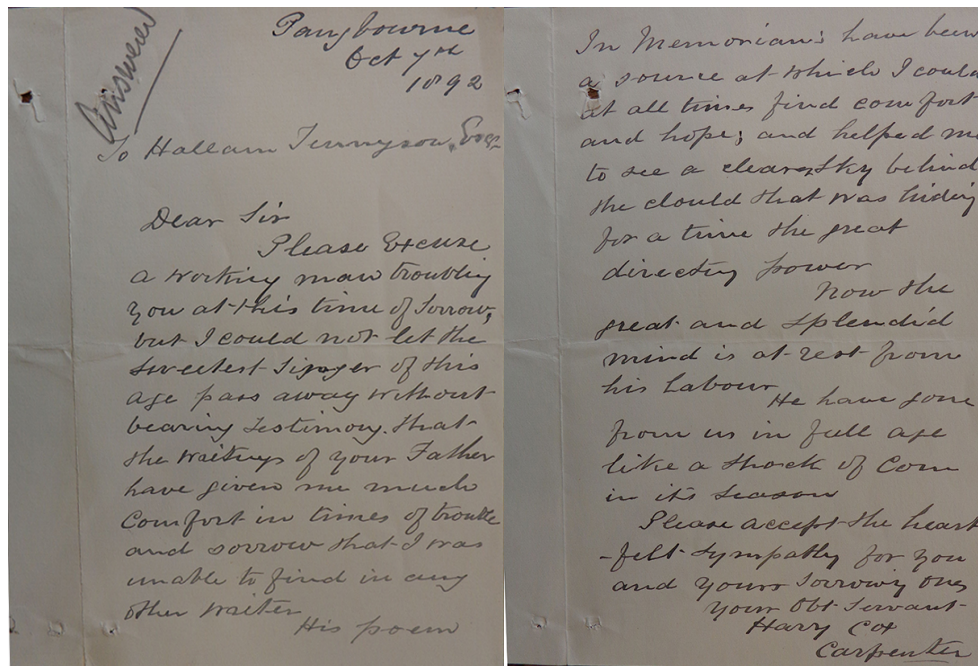 Answered
Pangbourne
Oct 7th
1892
To Hallam Tennyson, Esqr
Dear Sir
Please Excuse
a working man troubling
you at this time of sorrow,
but I could not let the
sweetest singer of this
age pass away without
bearing testimony. that
the writings of your Father
have given me much
comfort in times of trouble
and sorrow that I was
unable to find in any
other writer
His poem
In Memoriam's have been
a source at which I could
at all times find comfort
and hope; and helped me
to see a clearer sky behind
the clould that was hiding
for a time the great
directing power
Now the
great and splendid
mind is at rest from
his labour
He have gone
from us in full age
like a shock of Corn
in its season
Please accept the heart
-felt sympathy for you
and yours sorrowing ones
Your Obt Servant
Harry Cox
Carpenter